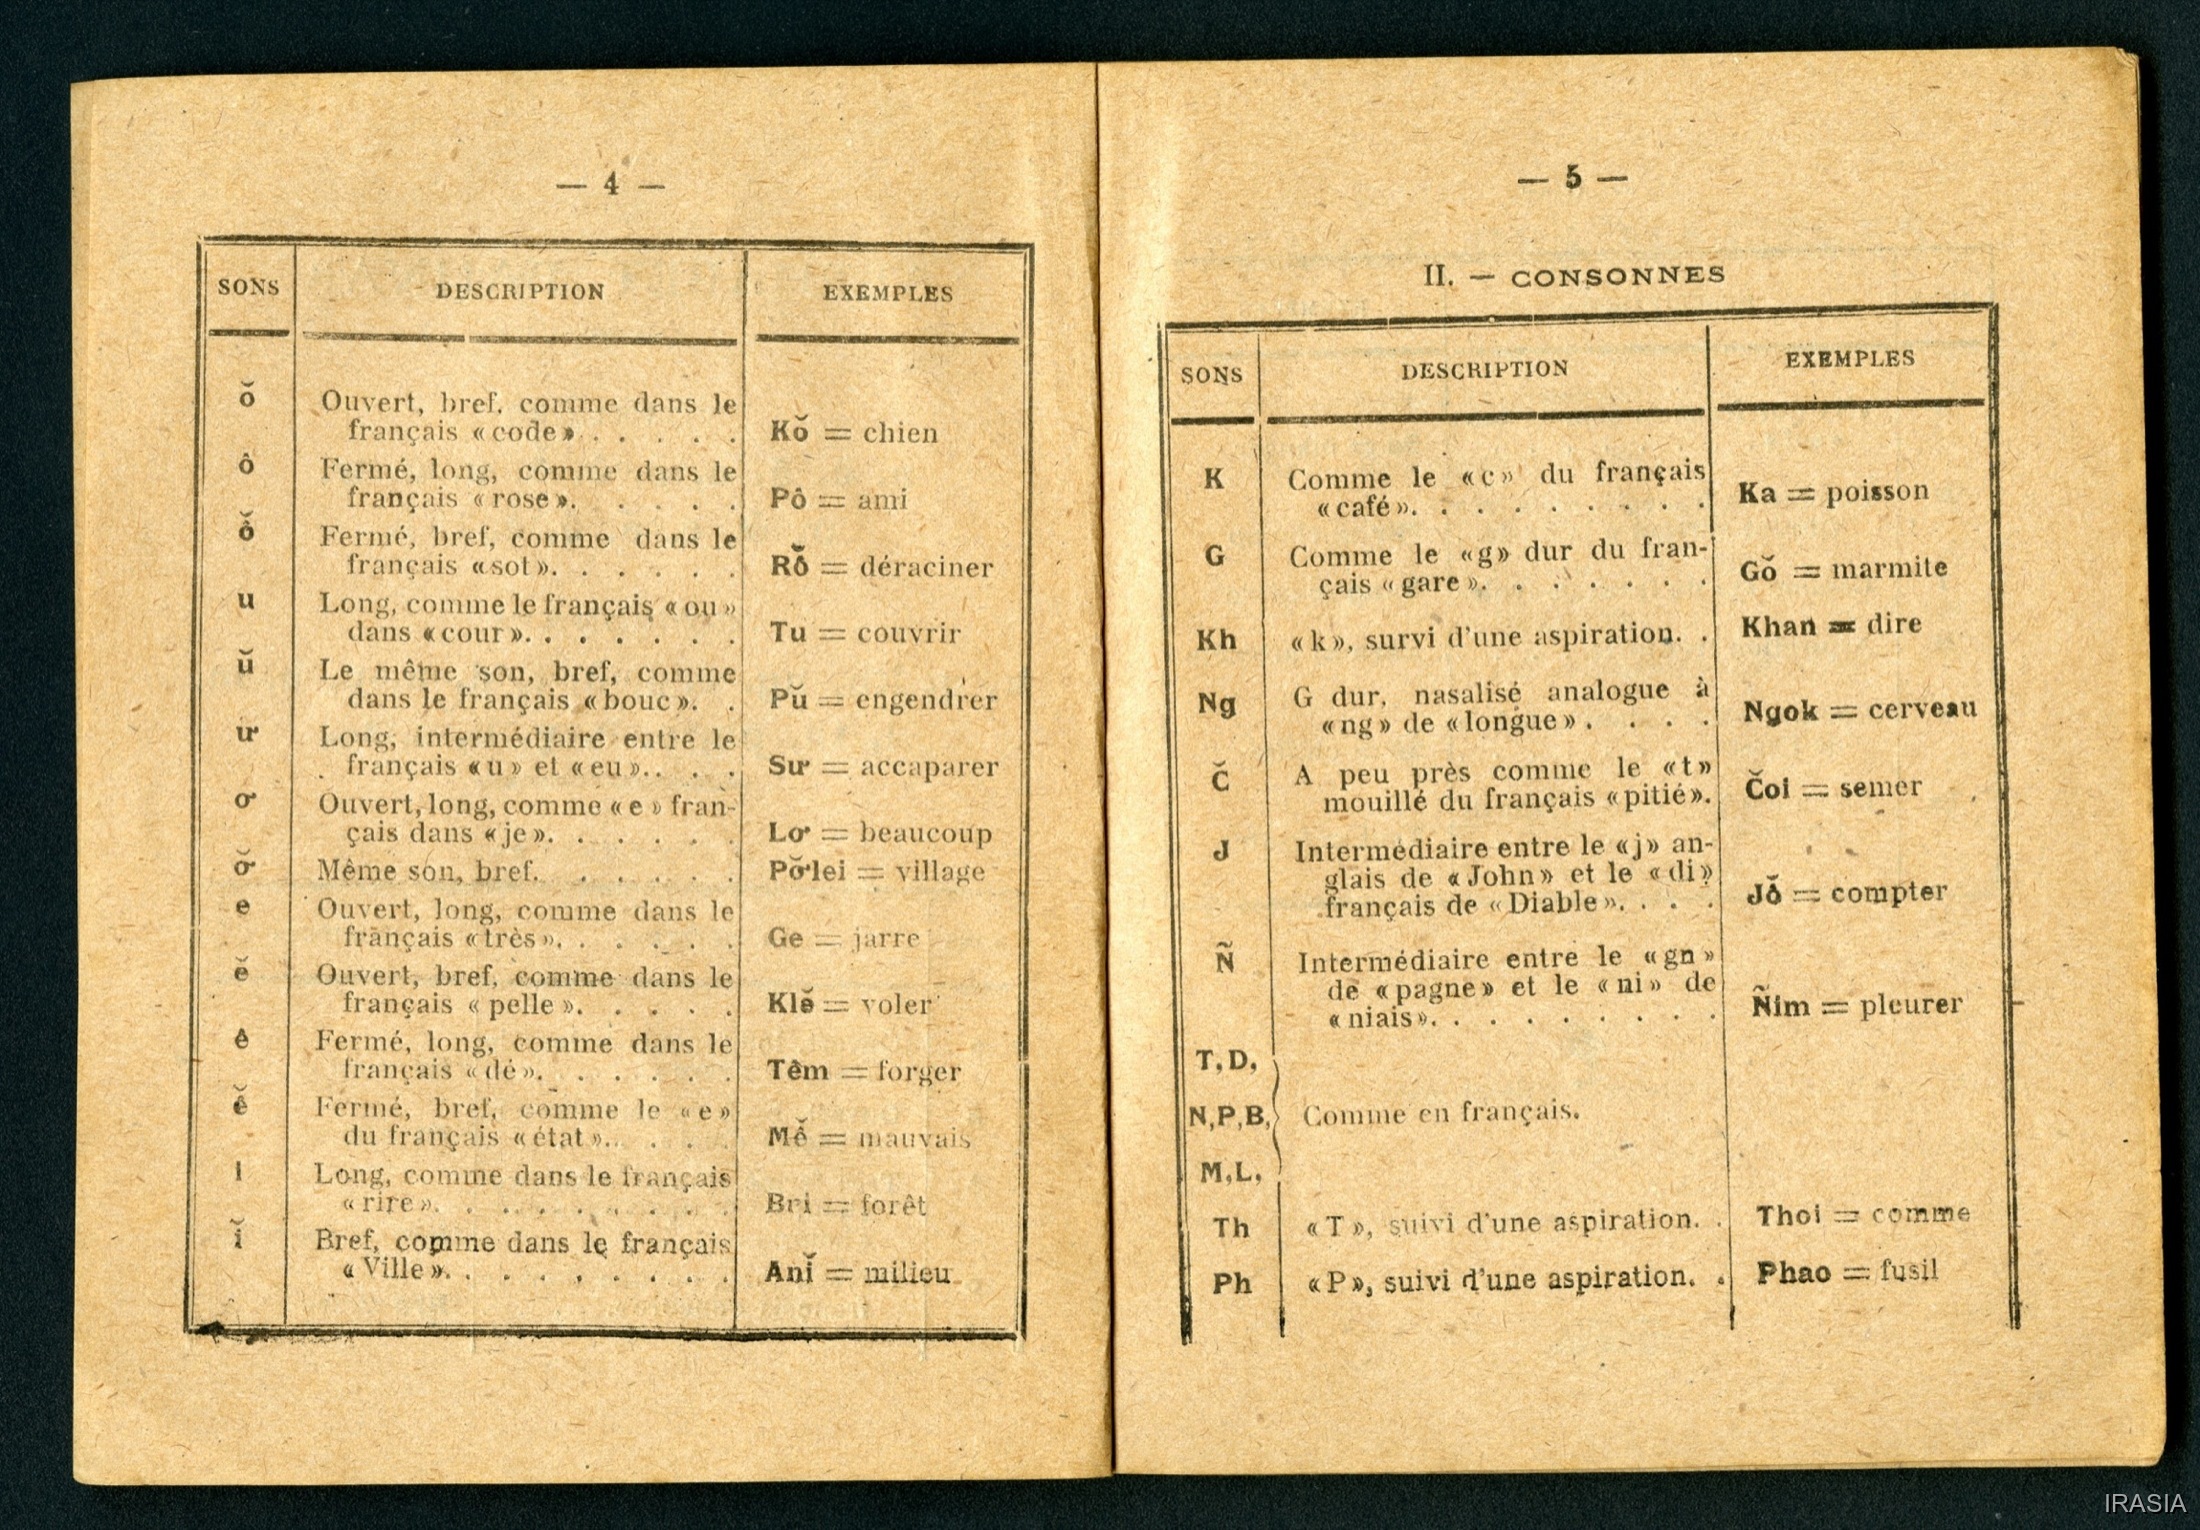 — 4 —
SONS DESCRIPTION EXEMPLES
ŏ Ouvert, bref, comme dans le
français «code» . . . . . Kŏ = chien
ô Fermé, long, comme dans le
français «rose». . . . . Pô = ami
ô̆ Fermé, bref, comme dans le
français «sot». . . . . . Rô̆ = déraciner
u Long, comme le français «ou»
dans «cour». . . . . . . Tu = couvrir
ŭ Le même son, bref, comme
dans le français «bouc». . Pŭ = engendrer
ư Long, intermédiaire entre le
français «u» et «eu».. . . Sư = accaparer
ơ Ouvert, long, comme «e» fran-
çais dans «je». . . . . . Lơ = beaucoup
ơ̆ Même son, bref. . . . . . Pơ̆lei = village
e Ouvert, long, comme dans le
français «très». . . . . . Ge = jarre
ĕ Ouvert, bref, comme dans le
français «pelle». . . . . Klĕ = voler
ê Fermé, long, comme dans le
français «dé». . . . . . Têm = forger
ê̆ Fermé, bref, comme le «e»
du français «état».. . . . Mê̆ = mauvais
i Long, comme dans le français
«rire». . . . . . . . . Bri = forêt
ĭ Bref, comme dans le français
«Ville». . . . . . . . . Anĭ = milieu
— 5 —
II. — CONSONNES
SONS DESCRIPTION EXEMPLES
K Comme le «c» du français
«café». . . . . . . . . Ka = poisson
G Comme le «g» dur du fran-
çais «gare». . . . . . . Gŏ = marmite
Kh «k», survi d'une aspiration. . Khan = dire
Ng G dur, nasalisé analogue à
«ng» de «longue» . . . . Ngok = cerveau
Č A peu près comme le «t»
mouillé du français «pitié». Čoi = semer
J Intermédiaire entre le «j» an-
glais de «John» et le «di»
français de «Diable». . . . Jô̆ = compter
Ñ Intermédiaire entre le «gn»
de «pagne» et le «ni» de
«niais». . . . . . . . . Ñim = pleurer
T, D,
N, P, B, Comme en français.
M, L,
Th «T», suivi d'une aspiration. . Thoi = comme
Ph «P», suivi d'une aspiration. . Phao = fusil
IRASIA